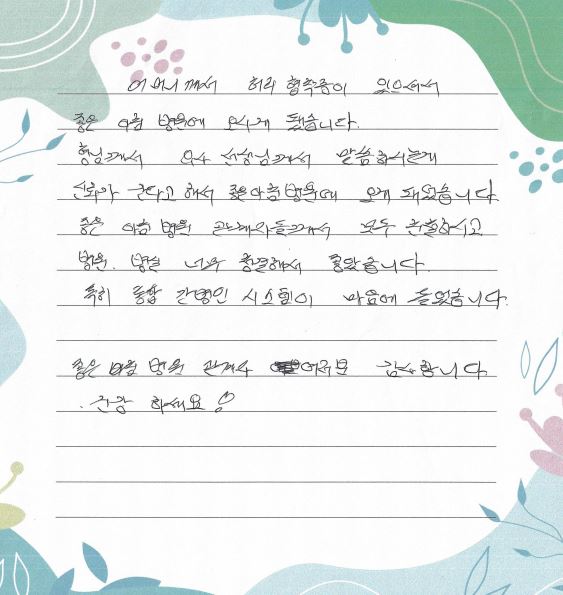 어머니께서 허리 협착증이 있으셔서
좋은 아침 병원에 오시게 됐습니다.
형님께서 의사 선생님께서 말씀하시는게
신뢰가 간다고 해서 좋은아침병원에 오게 되었습니다
좋은 아침 병원 관계자들께서 모두 친절하시고
병원. 병실 너무 청결해서 좋았습니다.
특히 통합 간병인 시스템이 마음에 들었습니다.
좋은 아침 병원 관계자 여러분 감사합니다
. 건강 하세요